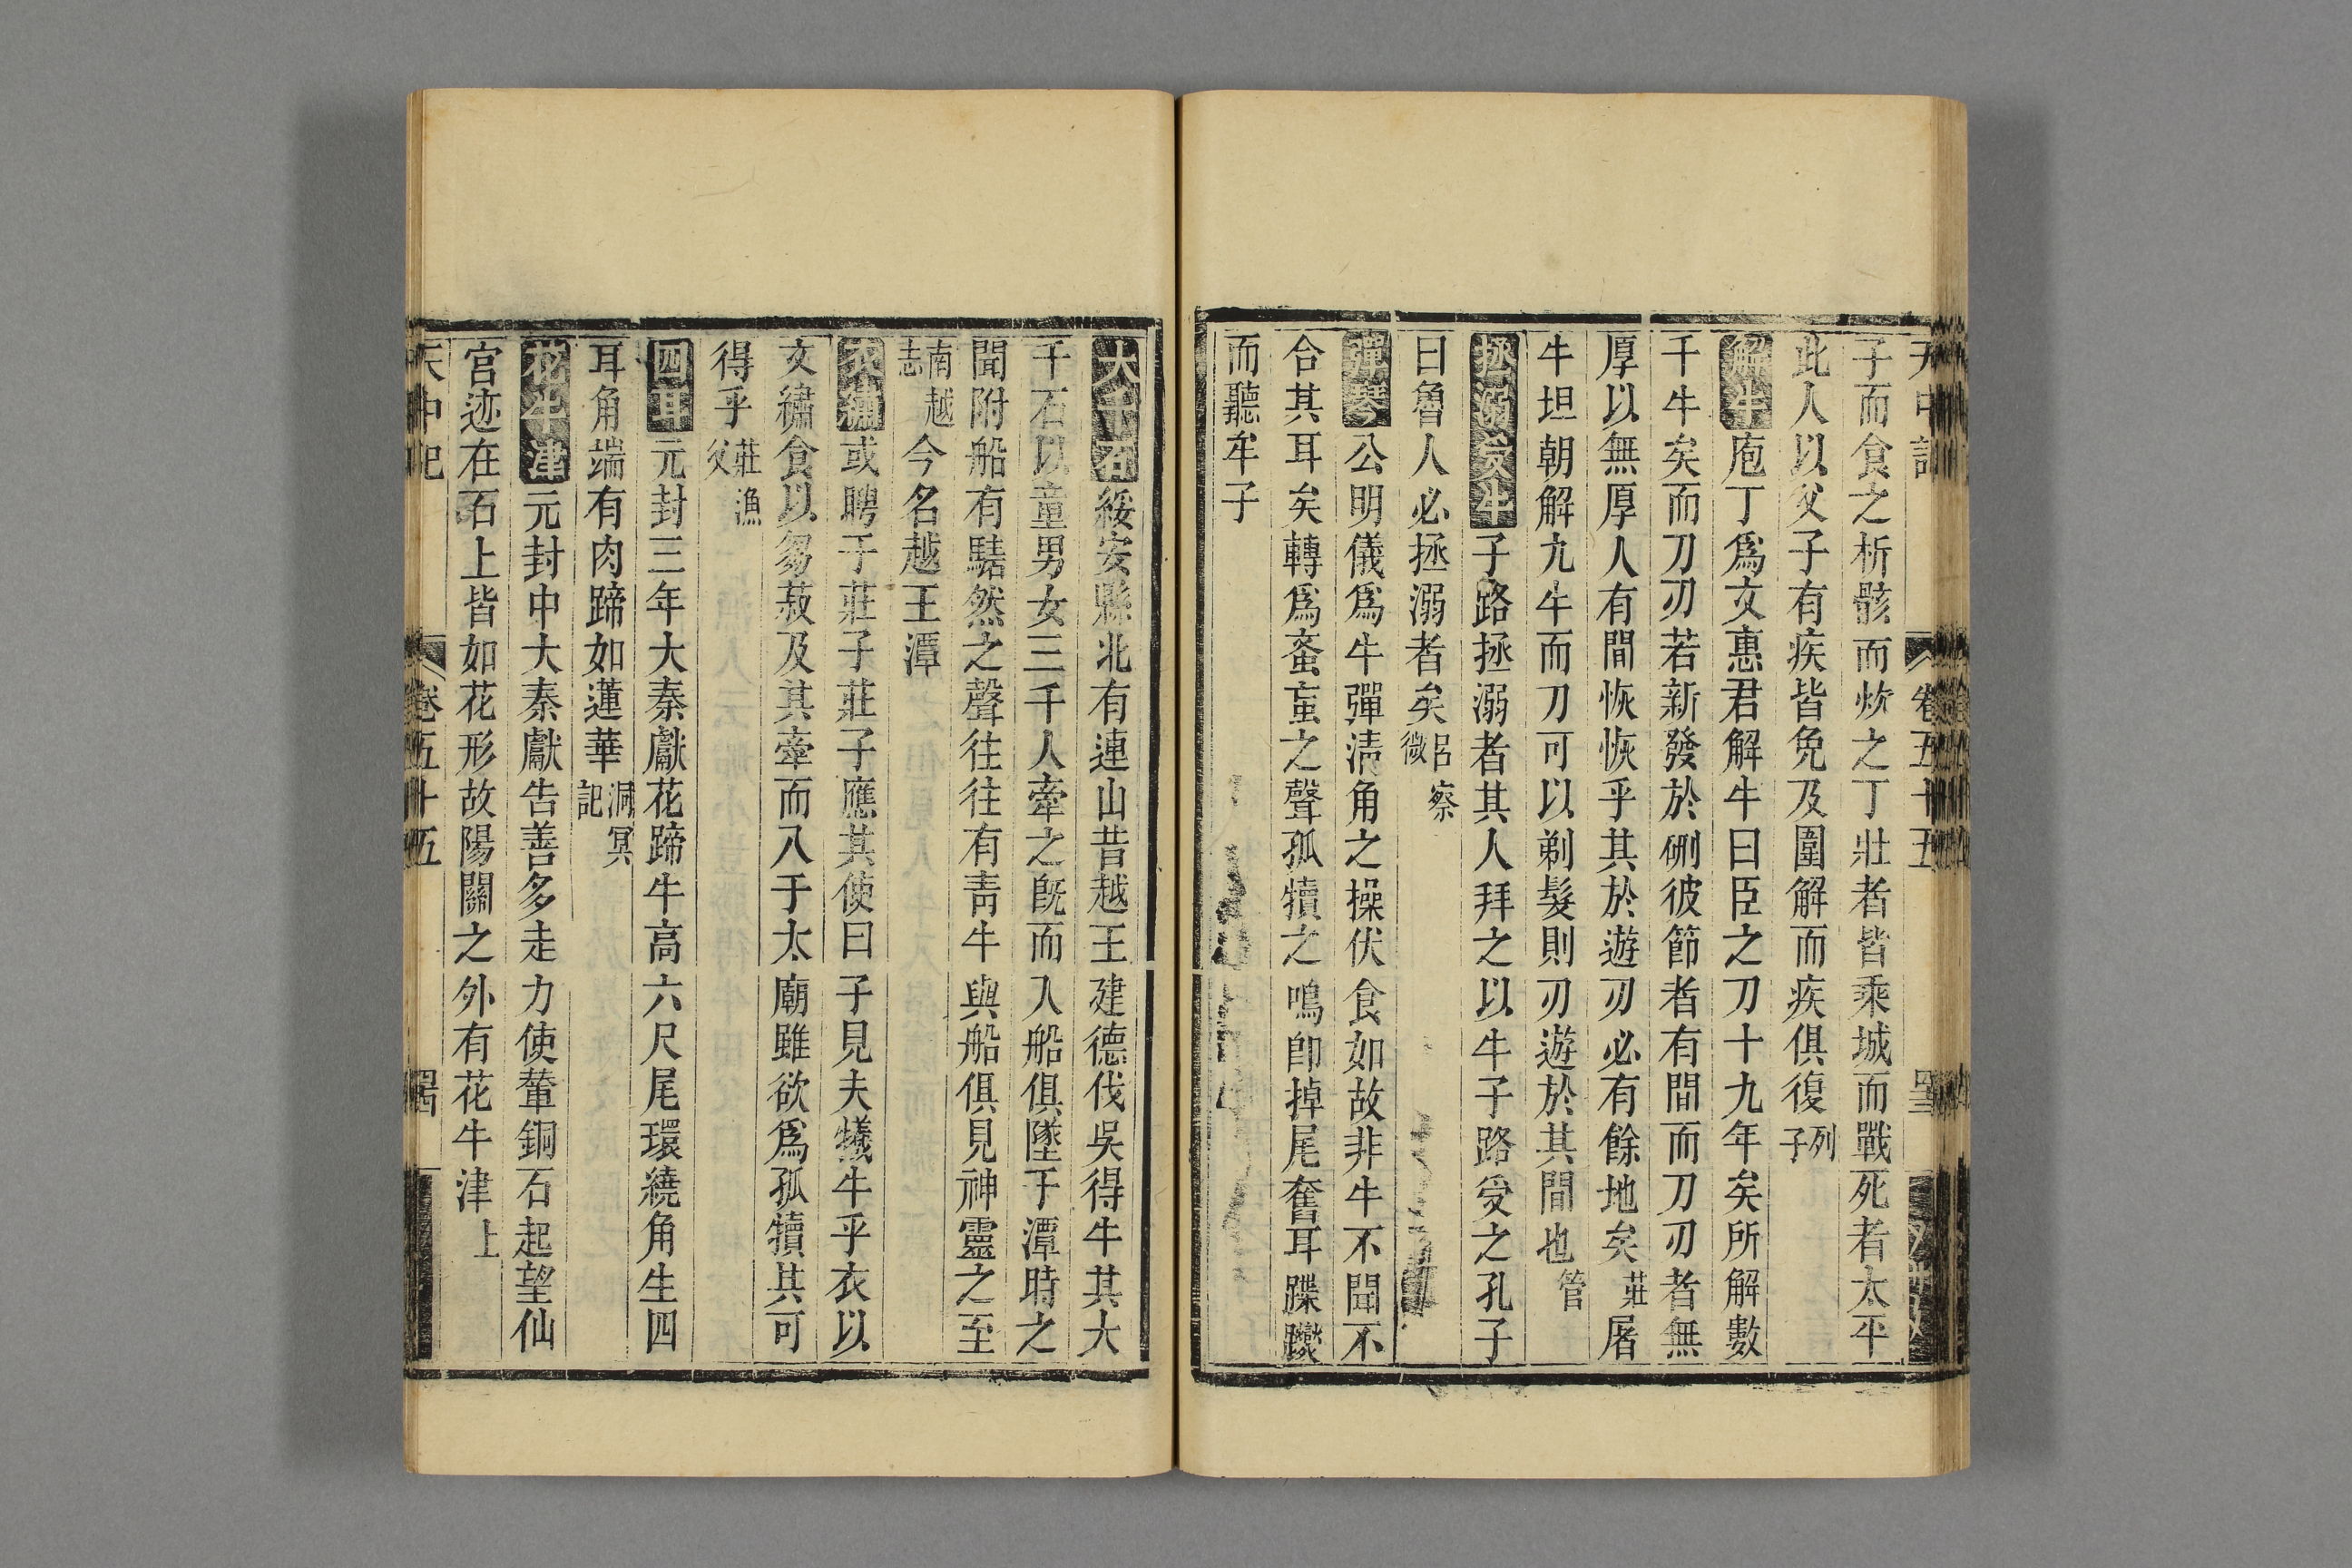 天中記 卷五十五
子而食之析骸而炊之丁壯者皆乘城而戰死者太平
此人以父子有疾皆免及圍解而疾俱復列子
解牛庖丁爲文惠君解牛曰臣之刀十九年矣所解數
千牛矣而刀刃若新發於硎彼節者有間而刀刃者無
厚以無厚入有間恢恢乎其於遊刃必有餘地矣莊屠
牛坦朝解九牛而刀可以剃髮則刃遊於其間也管
拯溺受牛子路拯溺者其人拜之以牛子路受之孔子
曰魯人必拯溺者矣呂察微
彈琴公明儀爲牛彈淸角之操伏食如故非牛不聞不
合其耳矣轉爲蚉䖟之聲孤犢之鳴卽掉尾奮耳蹀躞
而聽牟子
大千石綏安縣北有連山昔越王建德伐吳得牛其大
千石以童男女三千人牽之旣而入船俱墜于潭時之
聞附船有䮓然之聲往往有靑牛與船俱見神靈之至
南越志今名越王潭
衣繡或聘于莊子莊子應其使曰子見夫犧牛乎衣以
文繡食以芻菽及其牽而入于太廟雖欲爲孤犢其可
得乎莊漁父
四耳元封三年大秦獻花蹄牛高六尺尾環繞角生四
耳角端有肉蹄如蓮華洞冥記
花牛津元封中大秦獻告善多走力使輦銅石起望仙
宮迹在石上皆如花形故陽關之外有花牛津上
天中記 卷五十五